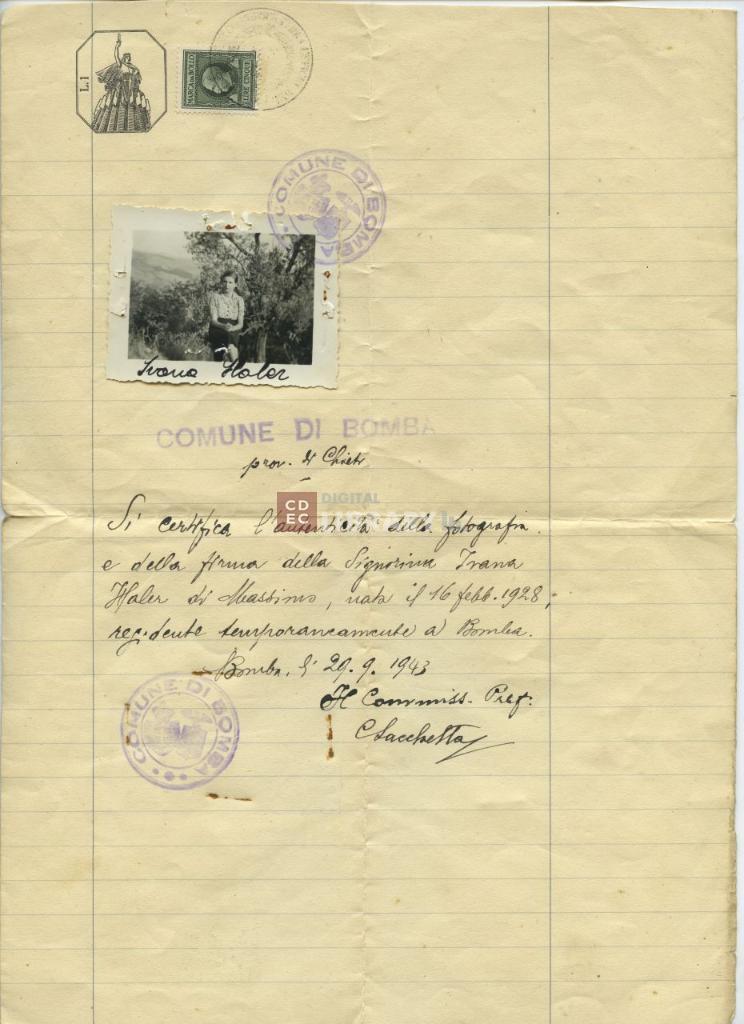 L.1
MARCA DA BOLLO
LIRE CINQUE
COMUNE DI BOMBA
Ivana Haler
COMUNE DI BOMBA
prov. di Chieti
CDEC DIGITAL LIBRARY.it
Si certifica l'autenticità della fotografia
e della firma della Signorina Ivana
Haler di Massimo, nata il 16 febb. 1928,
residente temporaneamente a Bomba.
Bomba, lì 29.9.1943
Il Commiss. Pref.
C Sacchetta
COMUNE DI BOMBA